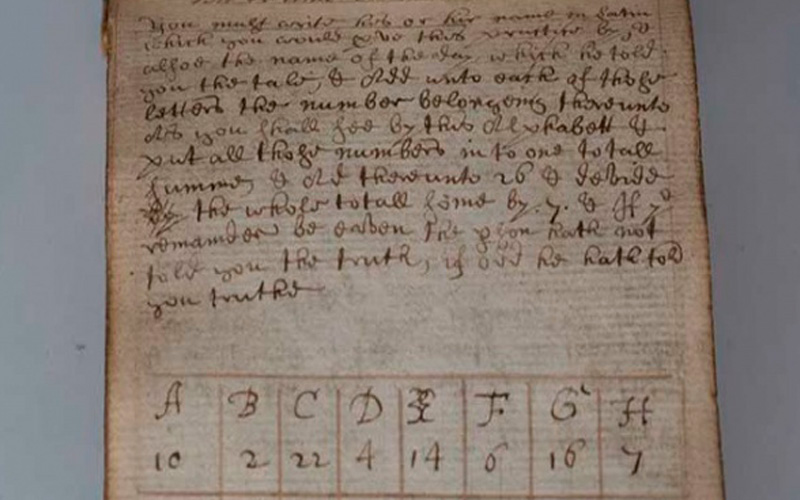 You must write his or hir name in Latin
which you would prove this practise by, &
allsoe the name of the day which he told
you the tale, & Add unto each of those
letters the number belongeing thereunto
As you shall see by this Alphabett &
put all those numbers in to one totall
summe, & Ad thereunto 26 & devide
the whole totall some by .7. & If ye
remainder be eaven the pson hath not
told you the truth, if odd he hath told
you truthe
A B C D E F G H
10 2 22 4 14 6 16 7